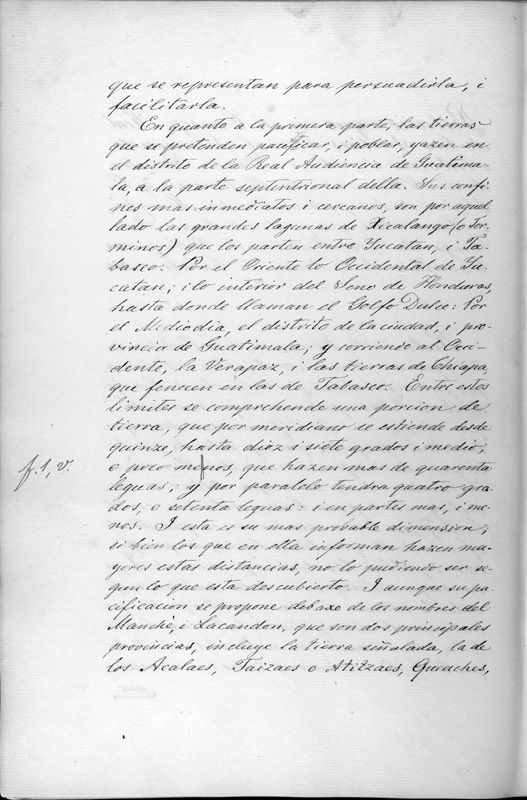 que se representan para persuadirla, i
facilitarla.
En quanto a la primera parte, las tierras
que se pretenden pacificar, i poblar, yazen en
el distrito de la Real Audiencia de Guatima-
la, a la parte septentrional della. Sus confi-
nes mas inmediatos i cercanos, son por aquel
lado las grandes lagunas de Xicalango (o Ter-
minos) que los parten entre Yucatan, i Ta-
basco. Por el Oriente lo Occidental de Yu-
catan; i lo interior del Seno de Honduras,
hasta donde llaman el Golfo Dulce: Por
el Mediodia, el distrito de la ciudad, i pro-
vincia de Guatimala; y corriendo al Occi-
dente, la Verapaz, i las tierras de Chiapa,
que fenecen en las de Tabasco. Entre estos
limites se comprehende una porcion de
tierra, que por meridiano se estiende desde
quinze, hasta diez i siete grados i medio,
f. 1, v.
o poco menos, que hazen mas de quarenta
leguas; y por paralelo tendra quatro gra-
dos, o setenta leguas: i en partes mas, i me-
nos. I esta es su mas probable dimension;
si bien los que en ella informan hazen ma-
yores estas distancias, no lo pudiendo ser se-
gun lo que esta descubierto. I aunque su pa-
cificacion se propone debaxo de los nombres del
Manchè, i Lacandon, que son dos principales
provincias, incluye la tierra señalada, la de
los Acalaes, Taizaes o Atitzaes, Queaches,